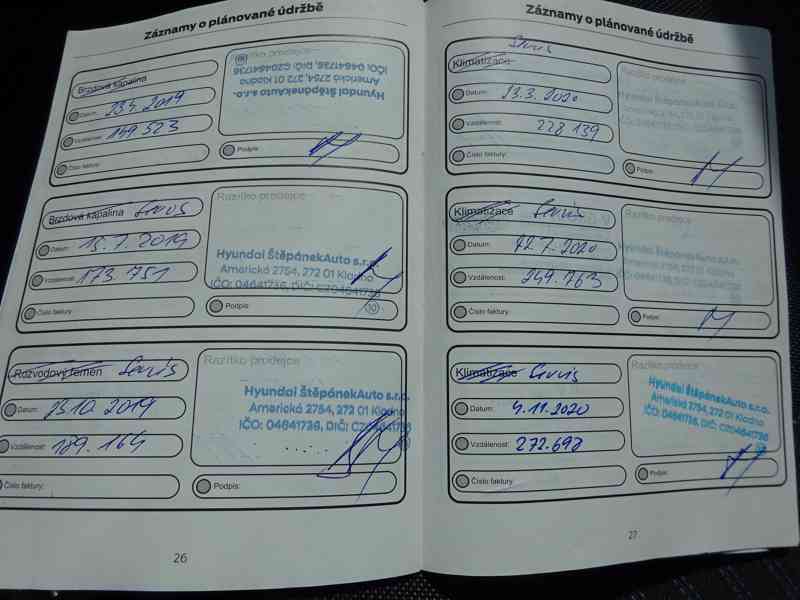 Záznamy o plánované údržbě
Brzdová kapalina
Datum: 23.4.2019
Vzdálenost: 149 523
Číslo faktury:
Razítko prodejce
Hyundai ŠtěpánekAuto s.r.o.
Americká 2754, 272 01 Kladno
IČO: 04641736, DIČ: CZ04641736
Podpis:
Brzdová kapalina Servis
Datum: 15.7.2019
Vzdálenost: 173.751
Číslo faktury:
Razítko prodejce
Hyundai ŠtěpánekAuto s.r.o.
Americká 2754, 272 01 Kladno
IČO: 04641736, DIČ: CZ04641736
10
Podpis:
Rozvodový řemen Servis
Datum: 23.10.2019
Vzdálenost: 189.164
Číslo faktury:
Razítko prodejce
Hyundai ŠtěpánekAuto s.r.o.
Americká 2754, 272 01 Kladno
IČO: 04641736, DIČ: CZ04641736
Podpis:
26
Záznamy o plánované údržbě
Servis
Klimatizace
Datum: 23.3.2020
Vzdálenost: 228 139
Číslo faktury:
Razítko prodejce
Hyundai ŠtěpánekAuto s.r.o.
Americká 2754, 272 01 Kladno
IČO: 04641736, DIČ: CZ04641736
Podpis:
Klimatizace Servis
Datum: 22.7.2020
Vzdálenost: 249.763
Číslo faktury:
Razítko prodejce
Podpis:
Klimatizace Servis
Datum: 4.11.2020
Vzdálenost: 272.693
Číslo faktury:
Razítko prodejce
Hyundai ŠtěpánekAuto s.r.o.
Americká 2754, 272 01 Kladno
IČO: 04641736, DIČ: CZ04641736
Podpis:
27